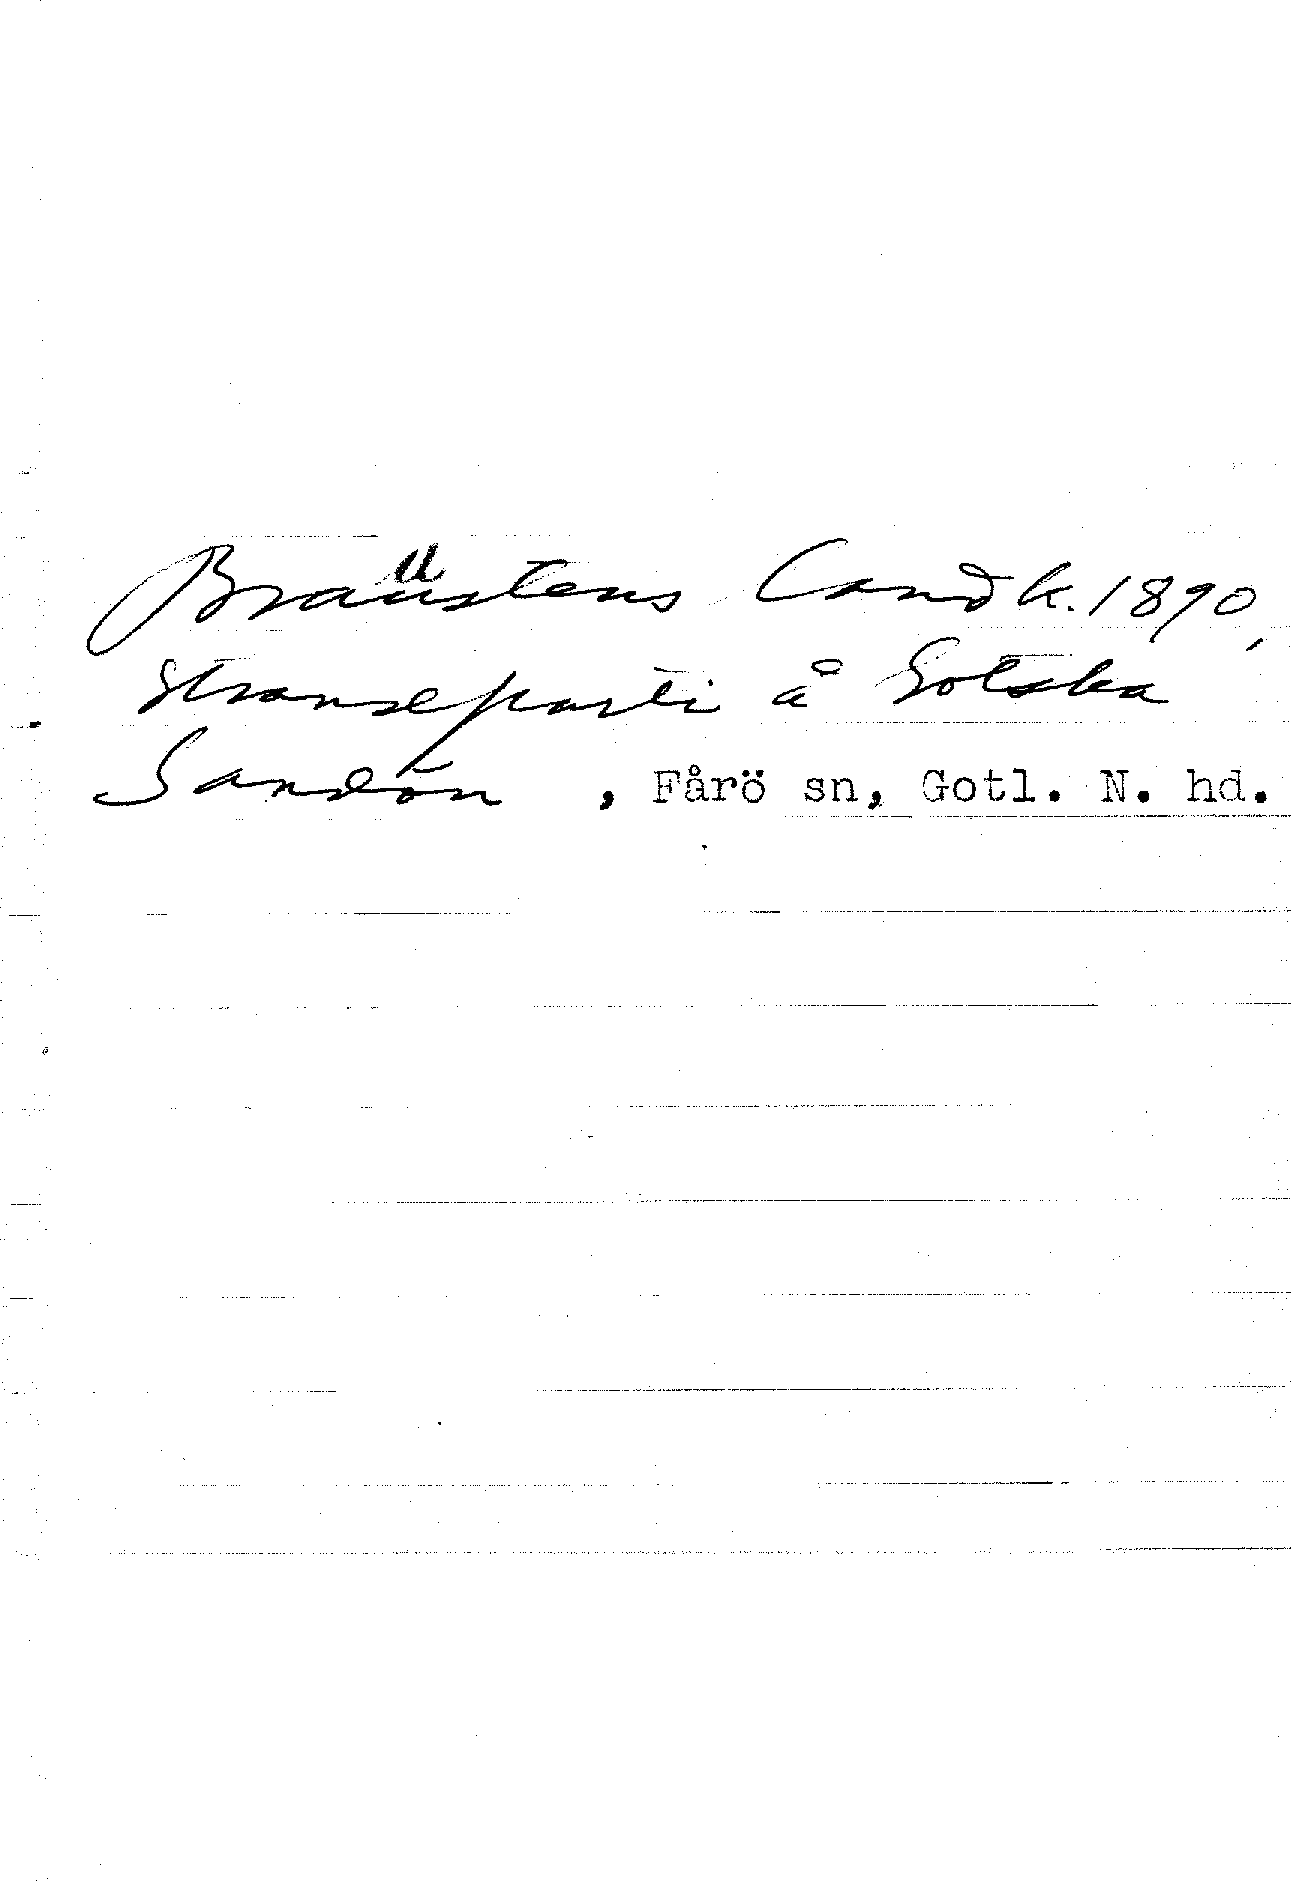 Braüstens Landk. 1890,
strandparti å Gotska
Sandön, Fårö sn, Gotl. N. hd.